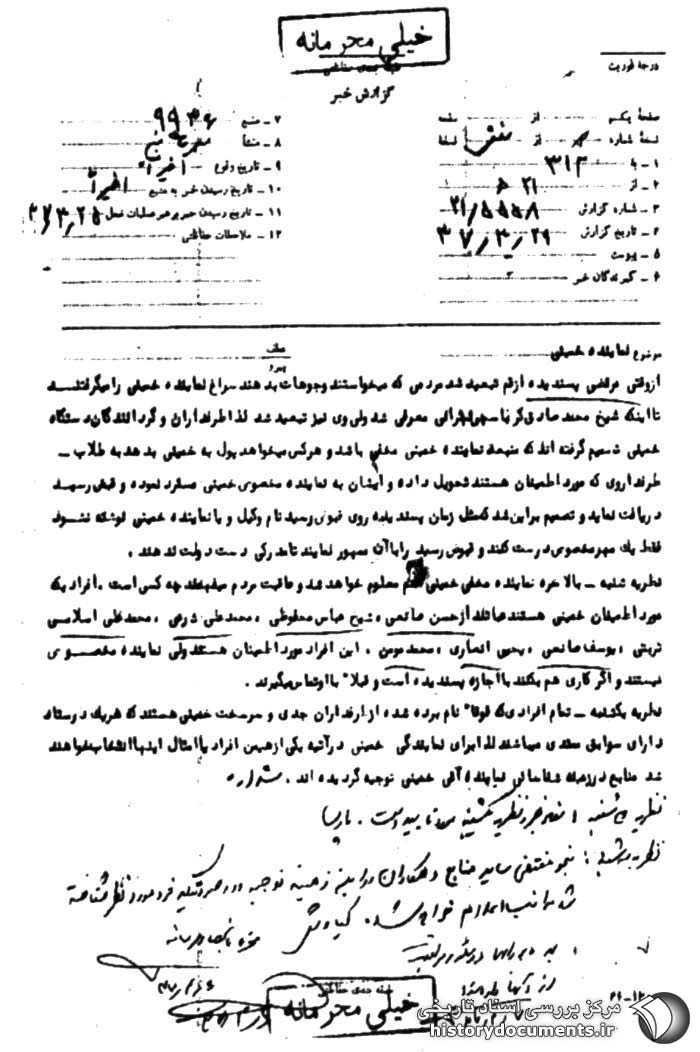 خیلی محرمانه
طبقه بندی حفاظتی
گزارش خبر
درجه فوریت
صفحه یکم از صفحه
نسخه شماره از نسخه
۱ - به ۳۱۲
۲ - از ۲۱ ه
۳ - شماره گزارش ۲۱/۵۵۵۸
۴ - تاریخ گزارش ۳۷/۳/۲۹
۵ - پیوست
۶ - گیرندگان خبر
۷ - منبع ۹۹۳۶
۸ - منشأ
۹ - تاریخ وقوع اخیراً
۱۰ - تاریخ رسیدن خبر به منبع اخیراً
۱۱ - تاریخ رسیدن خبر به رهبر عملیات محل ۳۷/۳/۲۵
۱۲ - ملاحظات حفاظتی
موضوع نماینده خمینی
عطف
پیرو
از وقتی مرتضی پسندیده از قم تبعید شد مردمی که میخواستند وجوهات بدهند سراغ نماینده خمینی را میگرفتند
تا اینکه شیخ محمد صادق کرباسچی تهرانی معرفی شد ولی وی نیز تبعید شد لذا طرفداران و گردانندگان دستگاه
خمینی تصمیم گرفته اند که منبعد نماینده خمینی مخفی باشد و هرکس میخواهد پول به خمینی بدهد به طلاب -
طرفدار وی که مورد اطمینان هستند تحویل داده و ایشان به نماینده مخصوص خمینی مسترد نموده و قبض رسید
دریافت نماید و تصمیم بر این شد که مثل زمان پسندیده روی قبوض رسید نام وکیل و یا نماینده خمینی نوشته نشود
فقط یک مهر مخصوص درست کنند و قبوض رسید را با آن ممهور نمایند تا مدرکی دست دولت ندهند .
نظریه شنبه - بالاخره نماینده مخفی خمینی هم معلوم خواهد شد و عاقبت مردم میفهمند چه کسی است . افرادیکه
مورد اطمینان خمینی هستند عبارتند از حسن صانعی ، شیخ عباس محفوظی ، محمد علی شرعی ، محمد علی اسلامی
تربتی ، یوسف صانعی ، یحیی انصاری ، محمد مومن . این افراد مورد اطمینان هستند ولی نماینده مخصوص
نیستند و اگر کاری هم بکنند با اجازه پسندیده است و قبلاً با او تماس میگیرند .
نظریه یکشنبه - تمام افرادیکه فوقاً نام برده شده از طرفداران جدی و سرسخت خمینی هستند که هریک در ستاد
دارای سوابق متعدی میباشند لذا برای نمایندگی خمینی در آتیه یکی از همین افراد یا امثال اینها انتخاب خواهند
شد منابع در زمینه شناسائی نماینده آتی خمینی توجیه گردیده اند .
نظریه سه شنبه : نظریه یکشنبه مورد تایید است . پارسا
منابع و همکاران در این زمینه توجیه در صورتیکه فرد مورد نظر شناخته
شد مراتب اعلام خواهد شد . کیاوش
خیلی محرمانه
طبقه بندی حفاظتی
۱۲-۲۶
مرکز بررسی اسناد تاریخی
historydocuments.ir